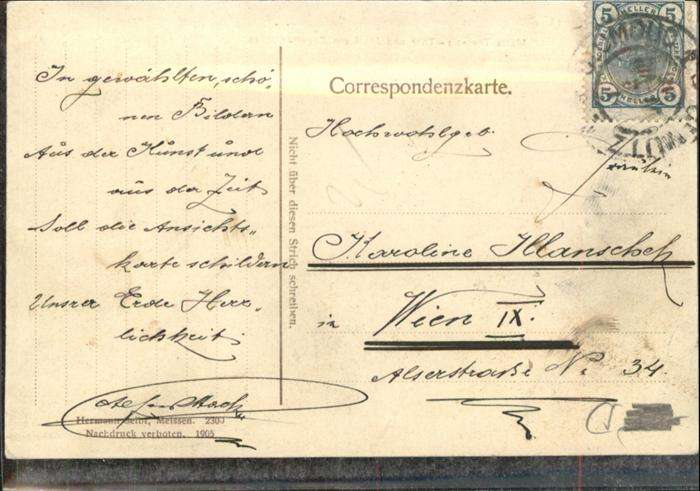 In gewählten, schö-
nen Bildern
Aus der Kunst und
aus der Zeit
Soll die Ansichts-
karte schildern
Unsrer Erde Herr-
lichkeit
Hermann Seibt, Meissen.
Nachdruck verboten. 1905
Nicht über diesen Strich schreiben.
Correspondenzkarte.
5 HELLER 5
5 HELLER 5
Hochwohlgeb.
Fräulein
Karoline
in Wien IX.
Alserstraße Nr. 34.